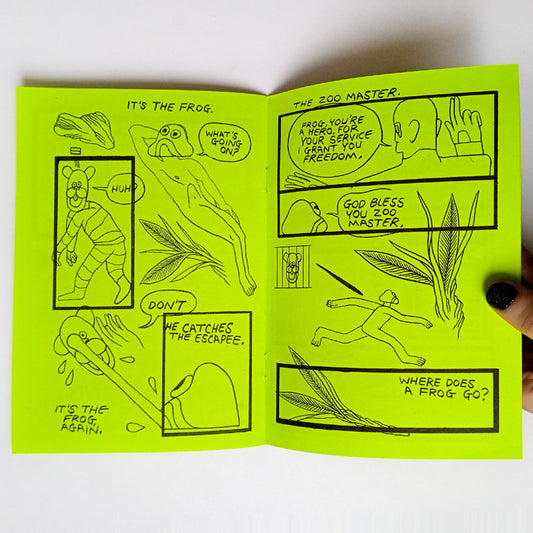 IT'S THE FROG.
WHAT'S
GOING
ON?
HUH?
DON'T
HE CATCHES
THE ESCAPEE.
IT'S THE
FROG,
AGAIN.
THE ZOO MASTER.
FROG, YOU'RE
A HERO. FOR
YOUR SERVICE
I GRANT YOU
FREEDOM.
GOD BLESS
YOU ZOO
MASTER.
WHERE DOES
A FROG GO?